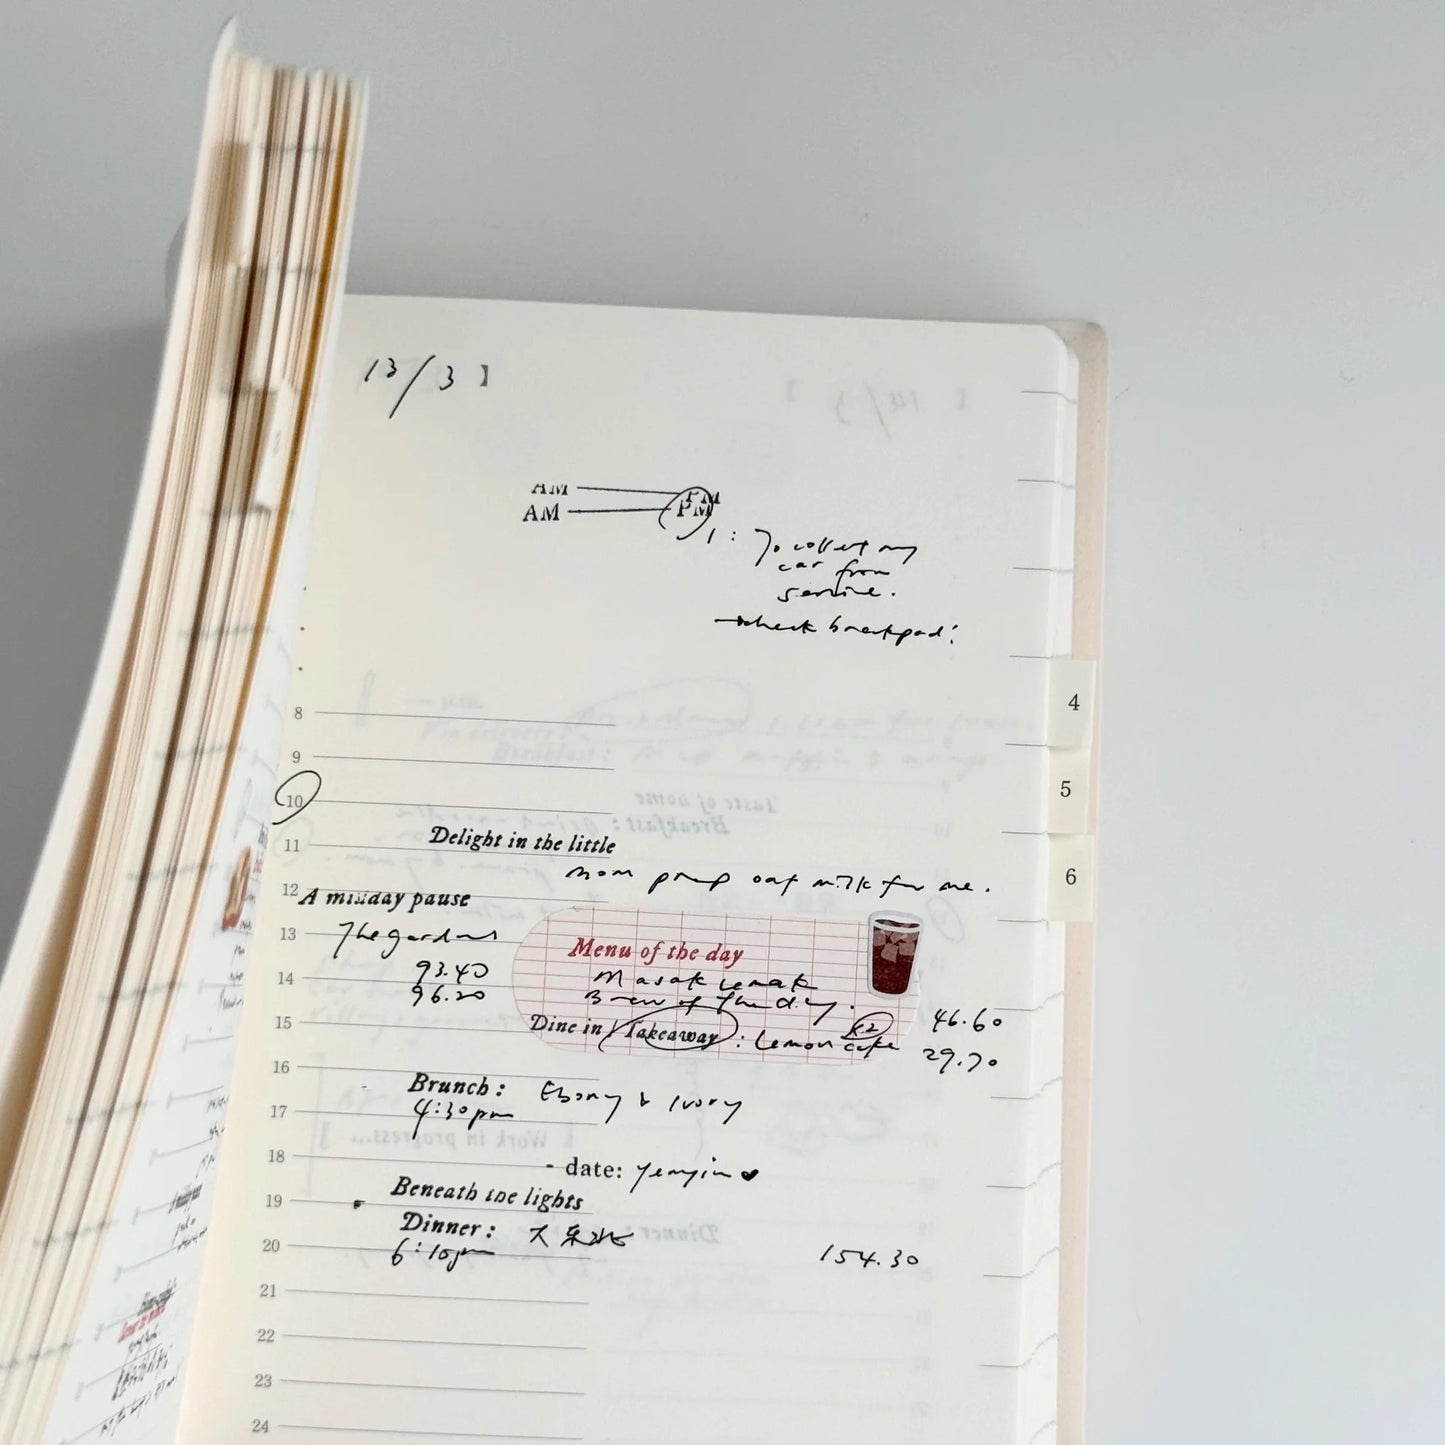 13/3 】
AM PM
AM PM
1: To collect my
car from
service.
→ check breakpad!
4
8
9
5
10
11
Delight in the little
6
mom prep oat milk for me.
12
A midday pause
13
The gardens
Menu of the day
93.40
14
Masak Lemak
96.20
Brew of the day.
46.60
15
Dine in / Takeaway : Lemon cake x2
29.70
16
Brunch: Ebony & Ivory
4:30pm
17
18
- date: yenyin ♥
Beneath the lights
19
Dinner: 大東北
20
6:10pm
154.30
21
22
23
24